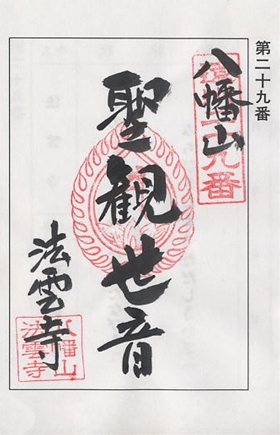 第二十九番
八幡山
聖観世音
法雲寺
八幡山
法雲寺